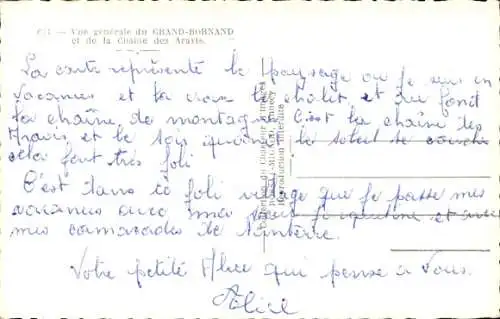 — Vue générale du GRAND-BORNAND
et de la Chaîne des Aravis.
La carte représente le paysage ou je suis en
vacances et la croix le chalet et au fond
la chaîne de montagne C'est la chaîne des
Aravis et le soir quand le soleil se couche
cela fait très joli
C'est dans ce joli village que je passe mes
vacances avec ma et avec
mes camarades de Nanterre.
Votre petite Alice qui pense a vous.
Alice
Reproduction interdite